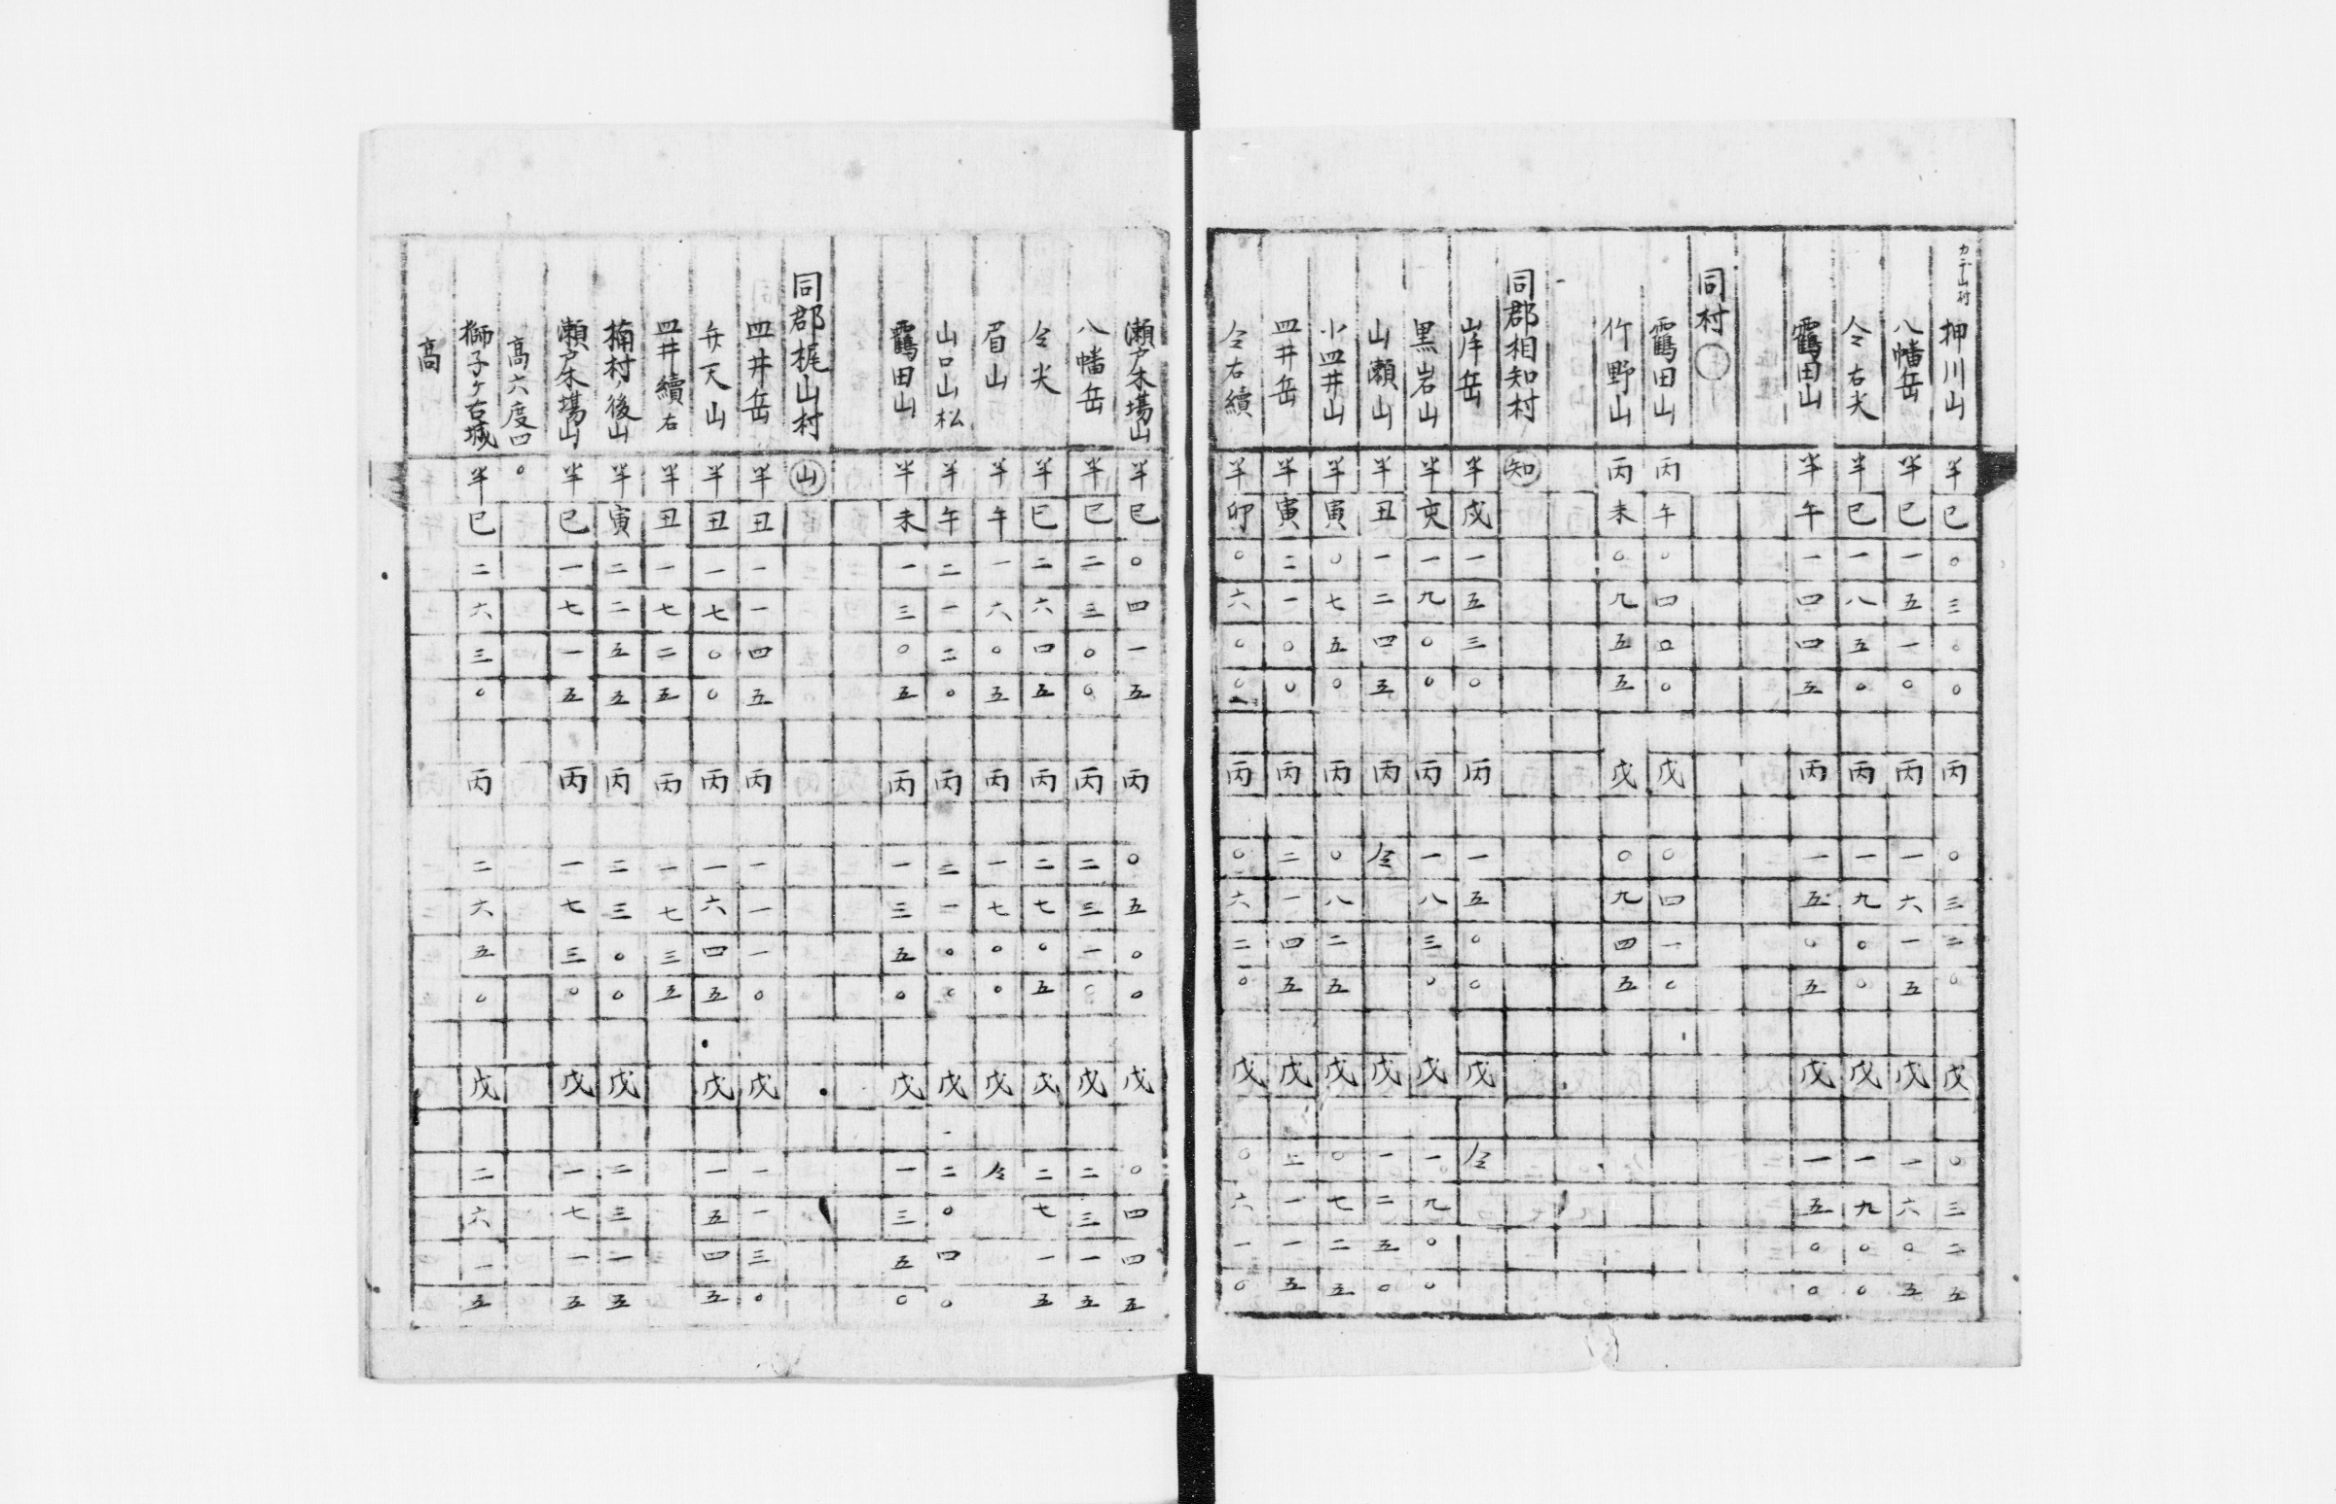 カチ山村 押川山 半 巳 〇 三 〇 〇 丙 〇 三 二 〇 戊 〇 三 二 五
八幡岳 半 巳 一 五 一 〇 丙 一 六 一 五 戊 一 六 〇 五
仝右尖 半 巳 一 八 五 〇 丙 一 九 〇 〇 戊 一 九 〇 〇
靏田山 半 午 一 四 四 五 丙 一 五 〇 五 戊 一 五 〇 〇
同村
靏田山 丙 午 〇 四 〇 〇 戊 〇 四 一 〇
竹野山 丙 未 〇 九 五 五 戊 〇 九 四 五
同郡相知村 知
岸岳 半 戌 一 五 三 〇 丙 一 五 〇 〇 戊 仝
黒岩山 半 亥 一 九 〇 〇 丙 一 八 三 〇 戊 一 九 〇 〇
山瀬山 半 丑 一 二 四 五 丙 仝 戊 一 二 五 〇
小皿井山 半 寅 〇 七 五 〇 丙 〇 八 二 五 戊 〇 七 二 五
皿井岳 半 寅 二 一 〇 〇 丙 二 一 四 五 戊 二 一 一 五
仝右續 半 卯 〇 六 〇 〇 丙 〇 六 二 〇 戊 〇 六 一 〇
瀬戸木場山 半 巳 〇 四 一 五 丙 〇 五 〇 〇 戊 〇 四 四 五
八幡岳 半 巳 二 三 〇 〇 丙 二 三 一 〇 戊 二 三 一 五
仝尖 半 巳 二 六 四 五 丙 二 七 〇 五 戊 二 七 一 五
眉山 半 午 一 六 〇 五 丙 一 七 〇 〇 戊 仝
山口山松 半 午 二 一 二 〇 丙 二 一 〇 〇 戊 二 〇 四 〇
靏田山 半 未 一 三 〇 五 丙 一 三 五 〇 戊 一 三 五 〇
同郡梶山村 山
皿井岳 半 丑 一 一 四 五 丙 一 一 一 〇 戊 一 一 三 〇
弁天山 半 丑 一 七 〇 〇 丙 一 六 四 五 戊 一 五 四 五
皿井續右 半 丑 一 七 二 五 丙 一 七 三 五
楠村ノ後山 半 寅 二 二 五 五 丙 二 三 〇 〇 戊 二 三 一 五
瀬戸木場山 半 巳 一 七 一 五 丙 一 七 三 〇 戊 一 七 一 五
高六度四〇
獅子ヶ古城 半 巳 二 六 三 〇 丙 二 六 五 〇 戊 二 六 一 五
高